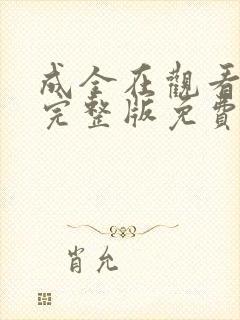 成全在觀看
完整版免費
肖允